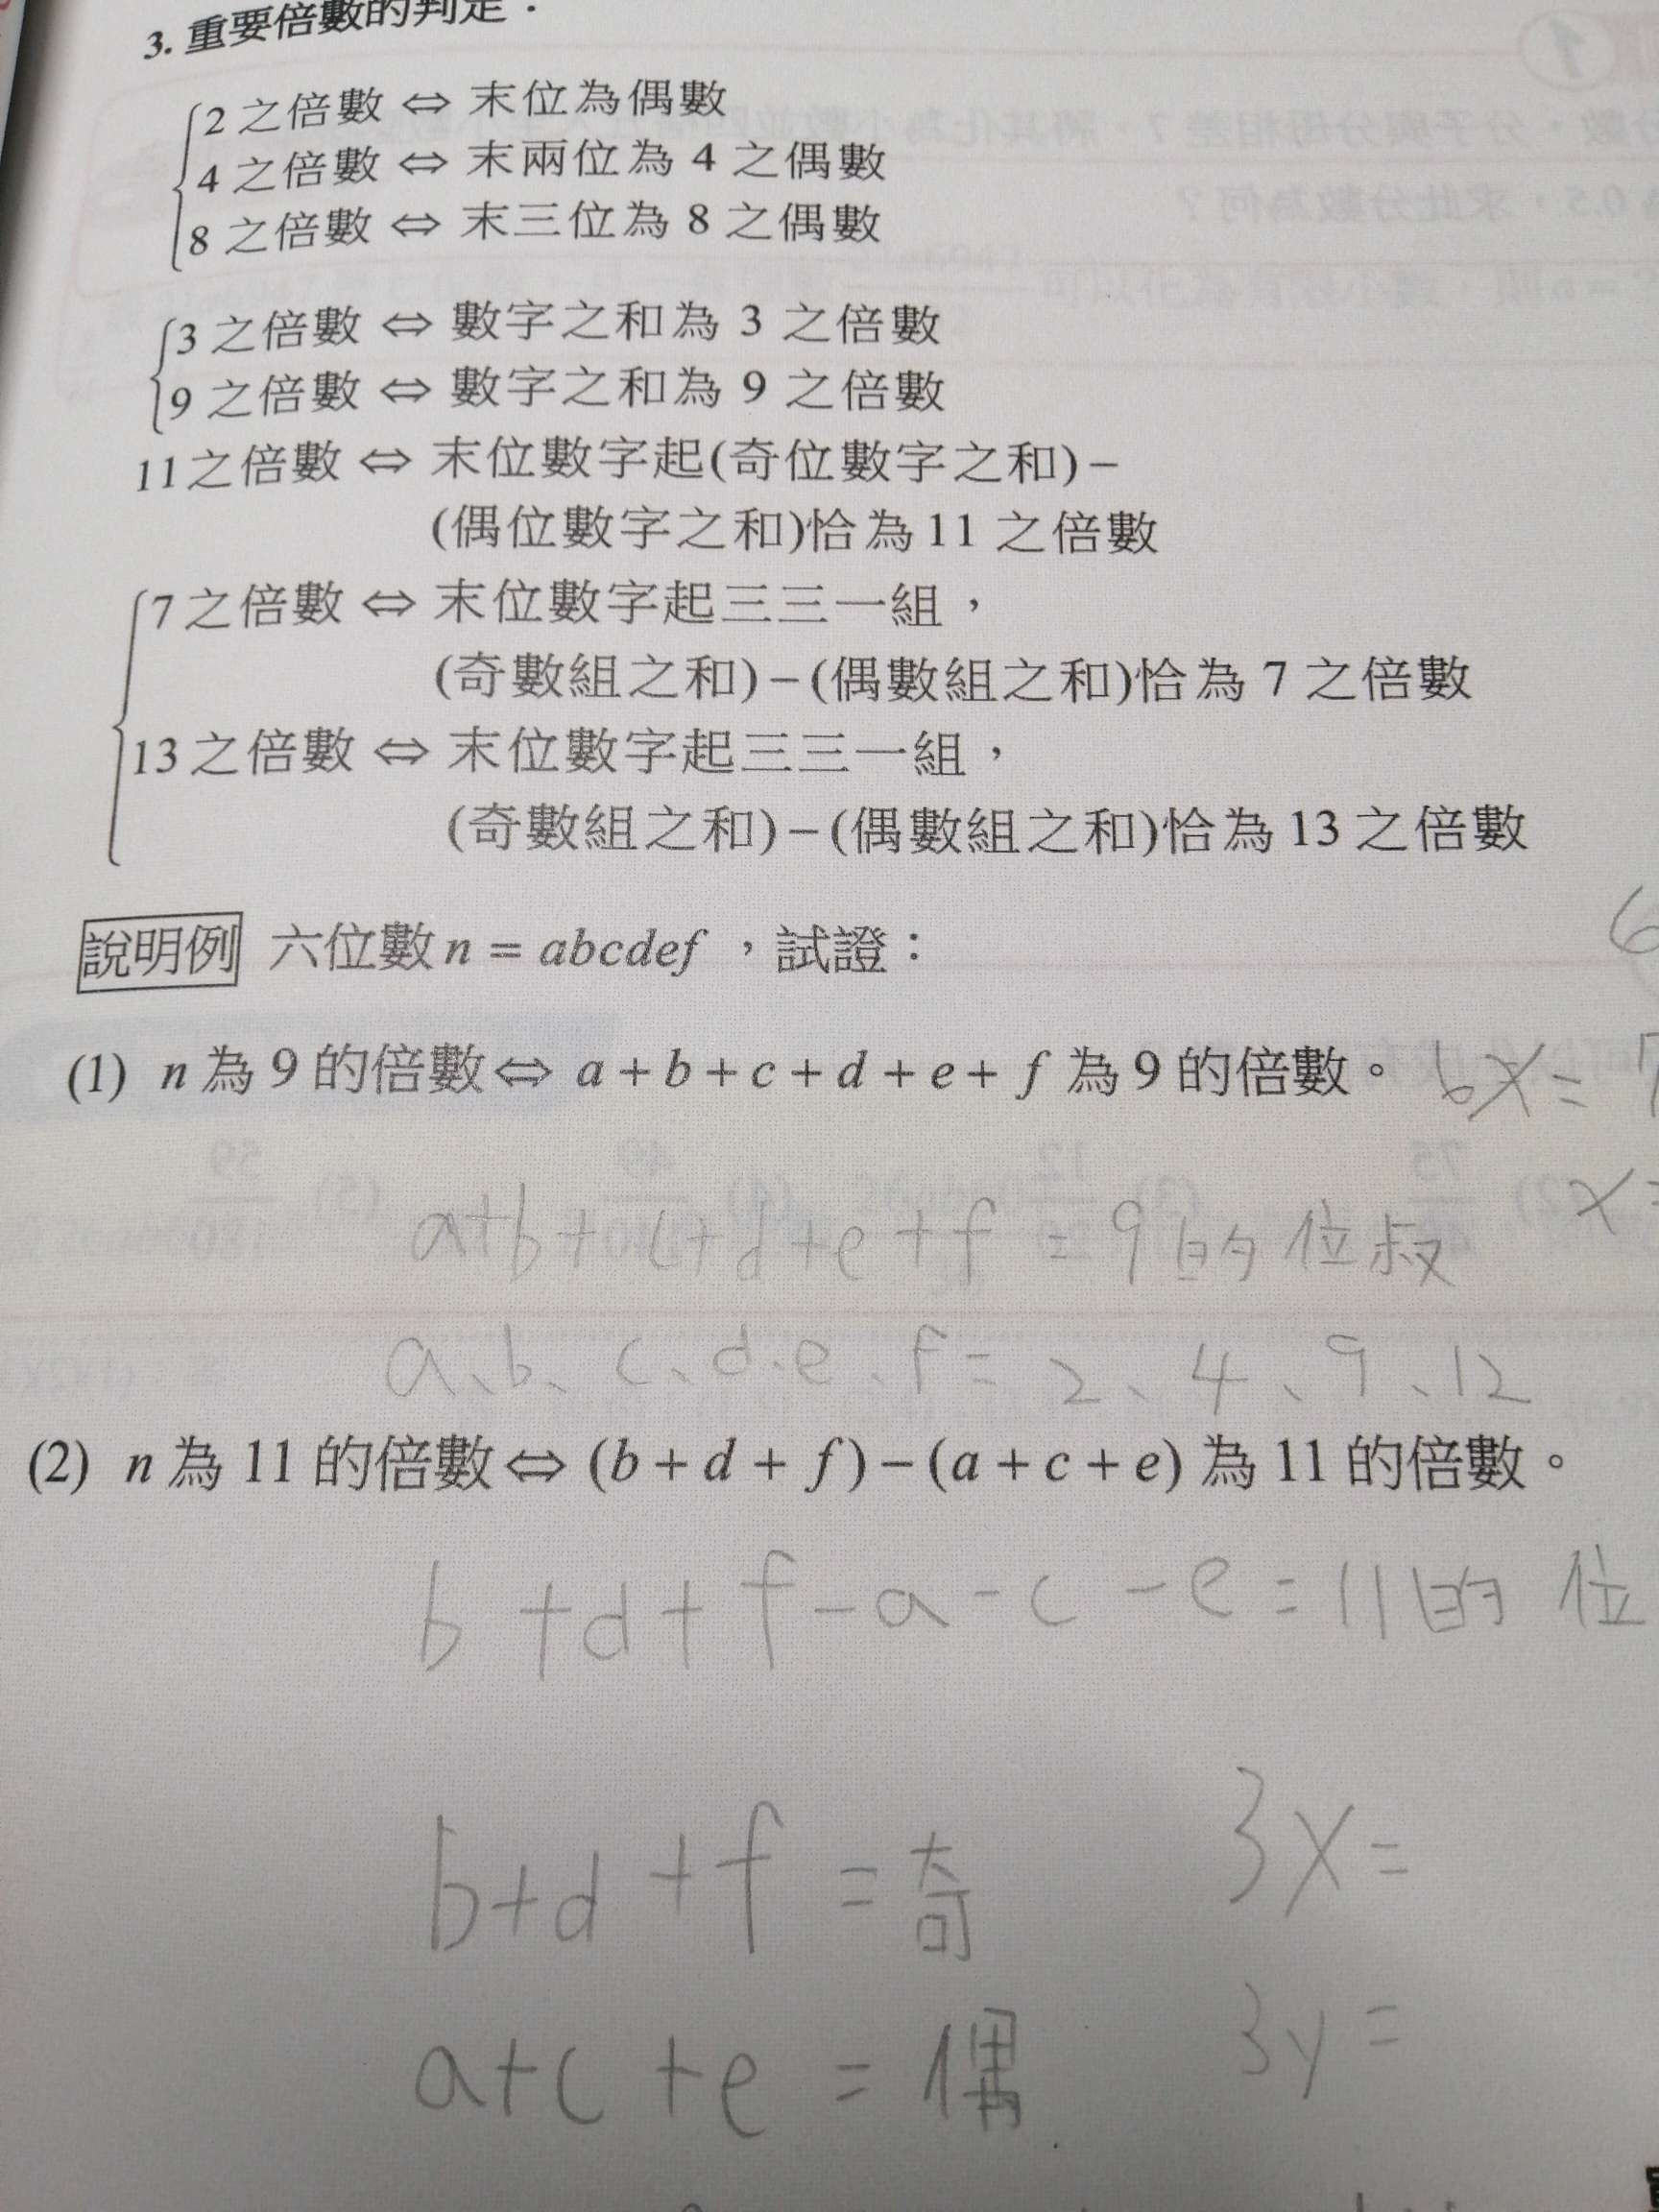 3. 重要倍數的判定：
2 之倍數 ⇔ 末位為偶數
4 之倍數 ⇔ 末兩位為 4 之偶數
8 之倍數 ⇔ 末三位為 8 之偶數
3 之倍數 ⇔ 數字之和為 3 之倍數
9 之倍數 ⇔ 數字之和為 9 之倍數
11之倍數 ⇔ 末位數字起(奇位數字之和)−
(偶位數字之和)恰為 11 之倍數
7 之倍數 ⇔ 末位數字起三三一組，
(奇數組之和)−(偶數組之和)恰為 7 之倍數
13 之倍數 ⇔ 末位數字起三三一組，
(奇數組之和)−(偶數組之和)恰為 13 之倍數
說明例 六位數 n = abcdef ，試證：
6
(1) n 為 9 的倍數⇔ a + b + c + d + e + f 為 9 的倍數。 6x = 7
a+b+c+d+e+f = 9的位叔 x=
a、b、c、d、e、f = 2、4、9、12
(2) n 為 11 的倍數⇔ (b + d + f) − (a + c + e) 為 11 的倍數。
b+d+f-a-c-e=11的位
b+d+f=奇 3x=
a+c+e=偶 3y=